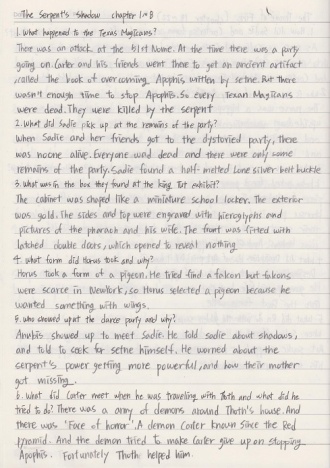 The Serpent's Shadow chapter 1~8
1. What happened to the Texas Magicans?
There was an attack at the 51st Nome. At the time there was a party
going on. Carter and his friends went there to get an ancient artifact
, called the book of overcoming Apophis written by setne. But there
wasn't enough time to stop Apophis. So every Texan Magicans
were dead. They were killed by the serpent
2. What did Sadie pick up at the remains of the party?
When Sadie and her friends got to the dystoried party, There
was noone alive. Everyone was dead and there were only some
remains of the party. Sadie found a half-melted Lone silver belt buckle
3. What was in the box they found at the king Tut exhibit?
The cabinet was shaped like a miniature school locker. The exterior
was gold. The sides and top were engraved with hieroglyphs and
pictures of the pharaoh and his wife. The front was fitted with
latched double doors, which opened to reveal nothing
4. What form did Horus took and why?
Horus took a form of a pigeon. He tried find a falcon but falcons
were scarce in NewYork, so Horus selected a pigeon because he
wanted something with wings.
5. Who showed up at the dance party and why?
Anubis showed up to meet Sadie. He told sadie about shadows,
and told to seek for setne himself. He worned about the
serpent's power getting more powerful, and how their mother
got missing.
6. What did Carter meet when he was traveling with Thoth and what did he
tried to do? There was a army of demons around Thoth's house. And
there was 'Face of horror'. A demon Carter known since the Red
pyramid. And the demon tried to make Carter give up on stopping
Apophis. Fortunately Thoth helped him.